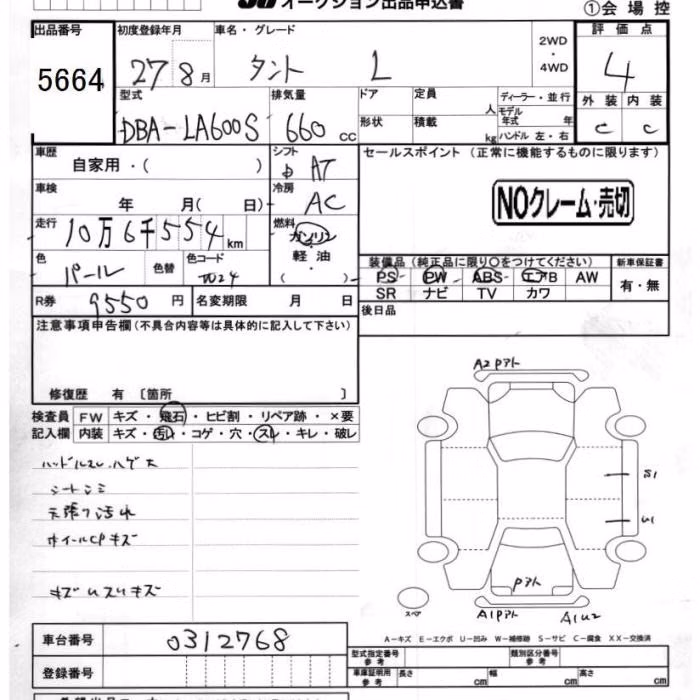 オークション出品申込書
①会場控
出品番号
5664
初度登録年月
27年8月
車名・グレード
タント L
2WD・4WD
評価点
4
外装 内装
C C
型式
DBA-LA600S
排気量
660cc
ドア
形状
定員
人
積載
kg
ディーラー・並行
モデル年式 年
ハンドル 左・右
車歴
自家用・( )
シフト
AT
セールスポイント(正常に機能するものに限ります)
NOクレーム・売切
車検
年 月( 日)
冷房
AC
走行
10万6千554km
燃料
ガソリン
軽油
・( )
色
パール
色替
色コード
W24
装備品(純正品に限り○をつけてください)
PS PW ABS エアB AW
SR ナビ TV カワ
新車保証書
有・無
R券
9550円
名変期限 月 日
後日品
注意事項申告欄(不具合内容等は具体的に記入して下さい)
修復歴 有〔箇所 〕
検査員記入欄
FW キズ・飛石・ヒビ割・リペア跡・×要
内装 キズ・汚れ・コゲ・穴・スレ・キレ・破レ
ハンドルスレ.ハゲ大
シートシミ
天張り汚れ
ホイールCPキズ
キズ.Uスリキズ
A2Pアト
S1
U1
Pアト
スペア
A1Pアト
A1U2
A-キズ E-エクボ U-凹み W-補修跡 S-サビ C-腐食 XX-交換済
車台番号
0312768
登録番号
型式指定番号
参考
類別区分番号
参考
車庫証明用
参考
長さ cm
幅 cm
高さ cm